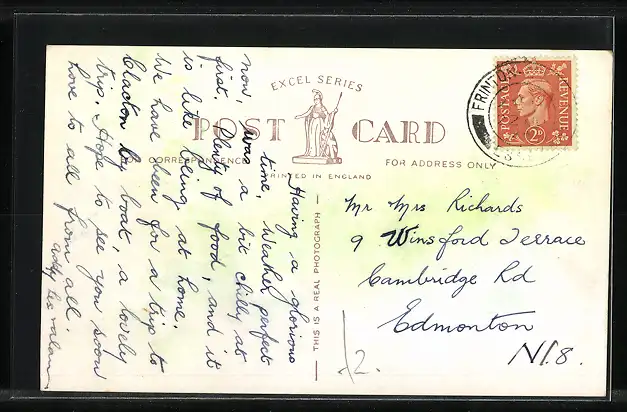 EXCEL SERIES
POST CARD
CORRESPONDENCE
FOR ADDRESS ONLY
PRINTED IN ENGLAND
THIS IS A REAL PHOTOGRAPH
Having a glorious
time, Weather perfect
now, was a bit chilly, at
first. Plenty of food, and it
is like being at home.
We have been for a trip to
Clacton by boat, a lovely
trip. Hope to see you soon
love to all from all.
POSTAGE REVENUE
2D
FRINTON
Mr Mrs Richards
9 Winsford Terrace
Cambridge Rd
Edmonton
N18.
£2.